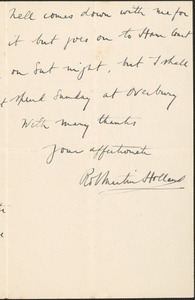 Nell comes down with me for
it but goes on to Ham Court
on Sat night, but I shall
spend Sunday at Overbury
With many thanks
Your affectionate
Rob Martin Holland